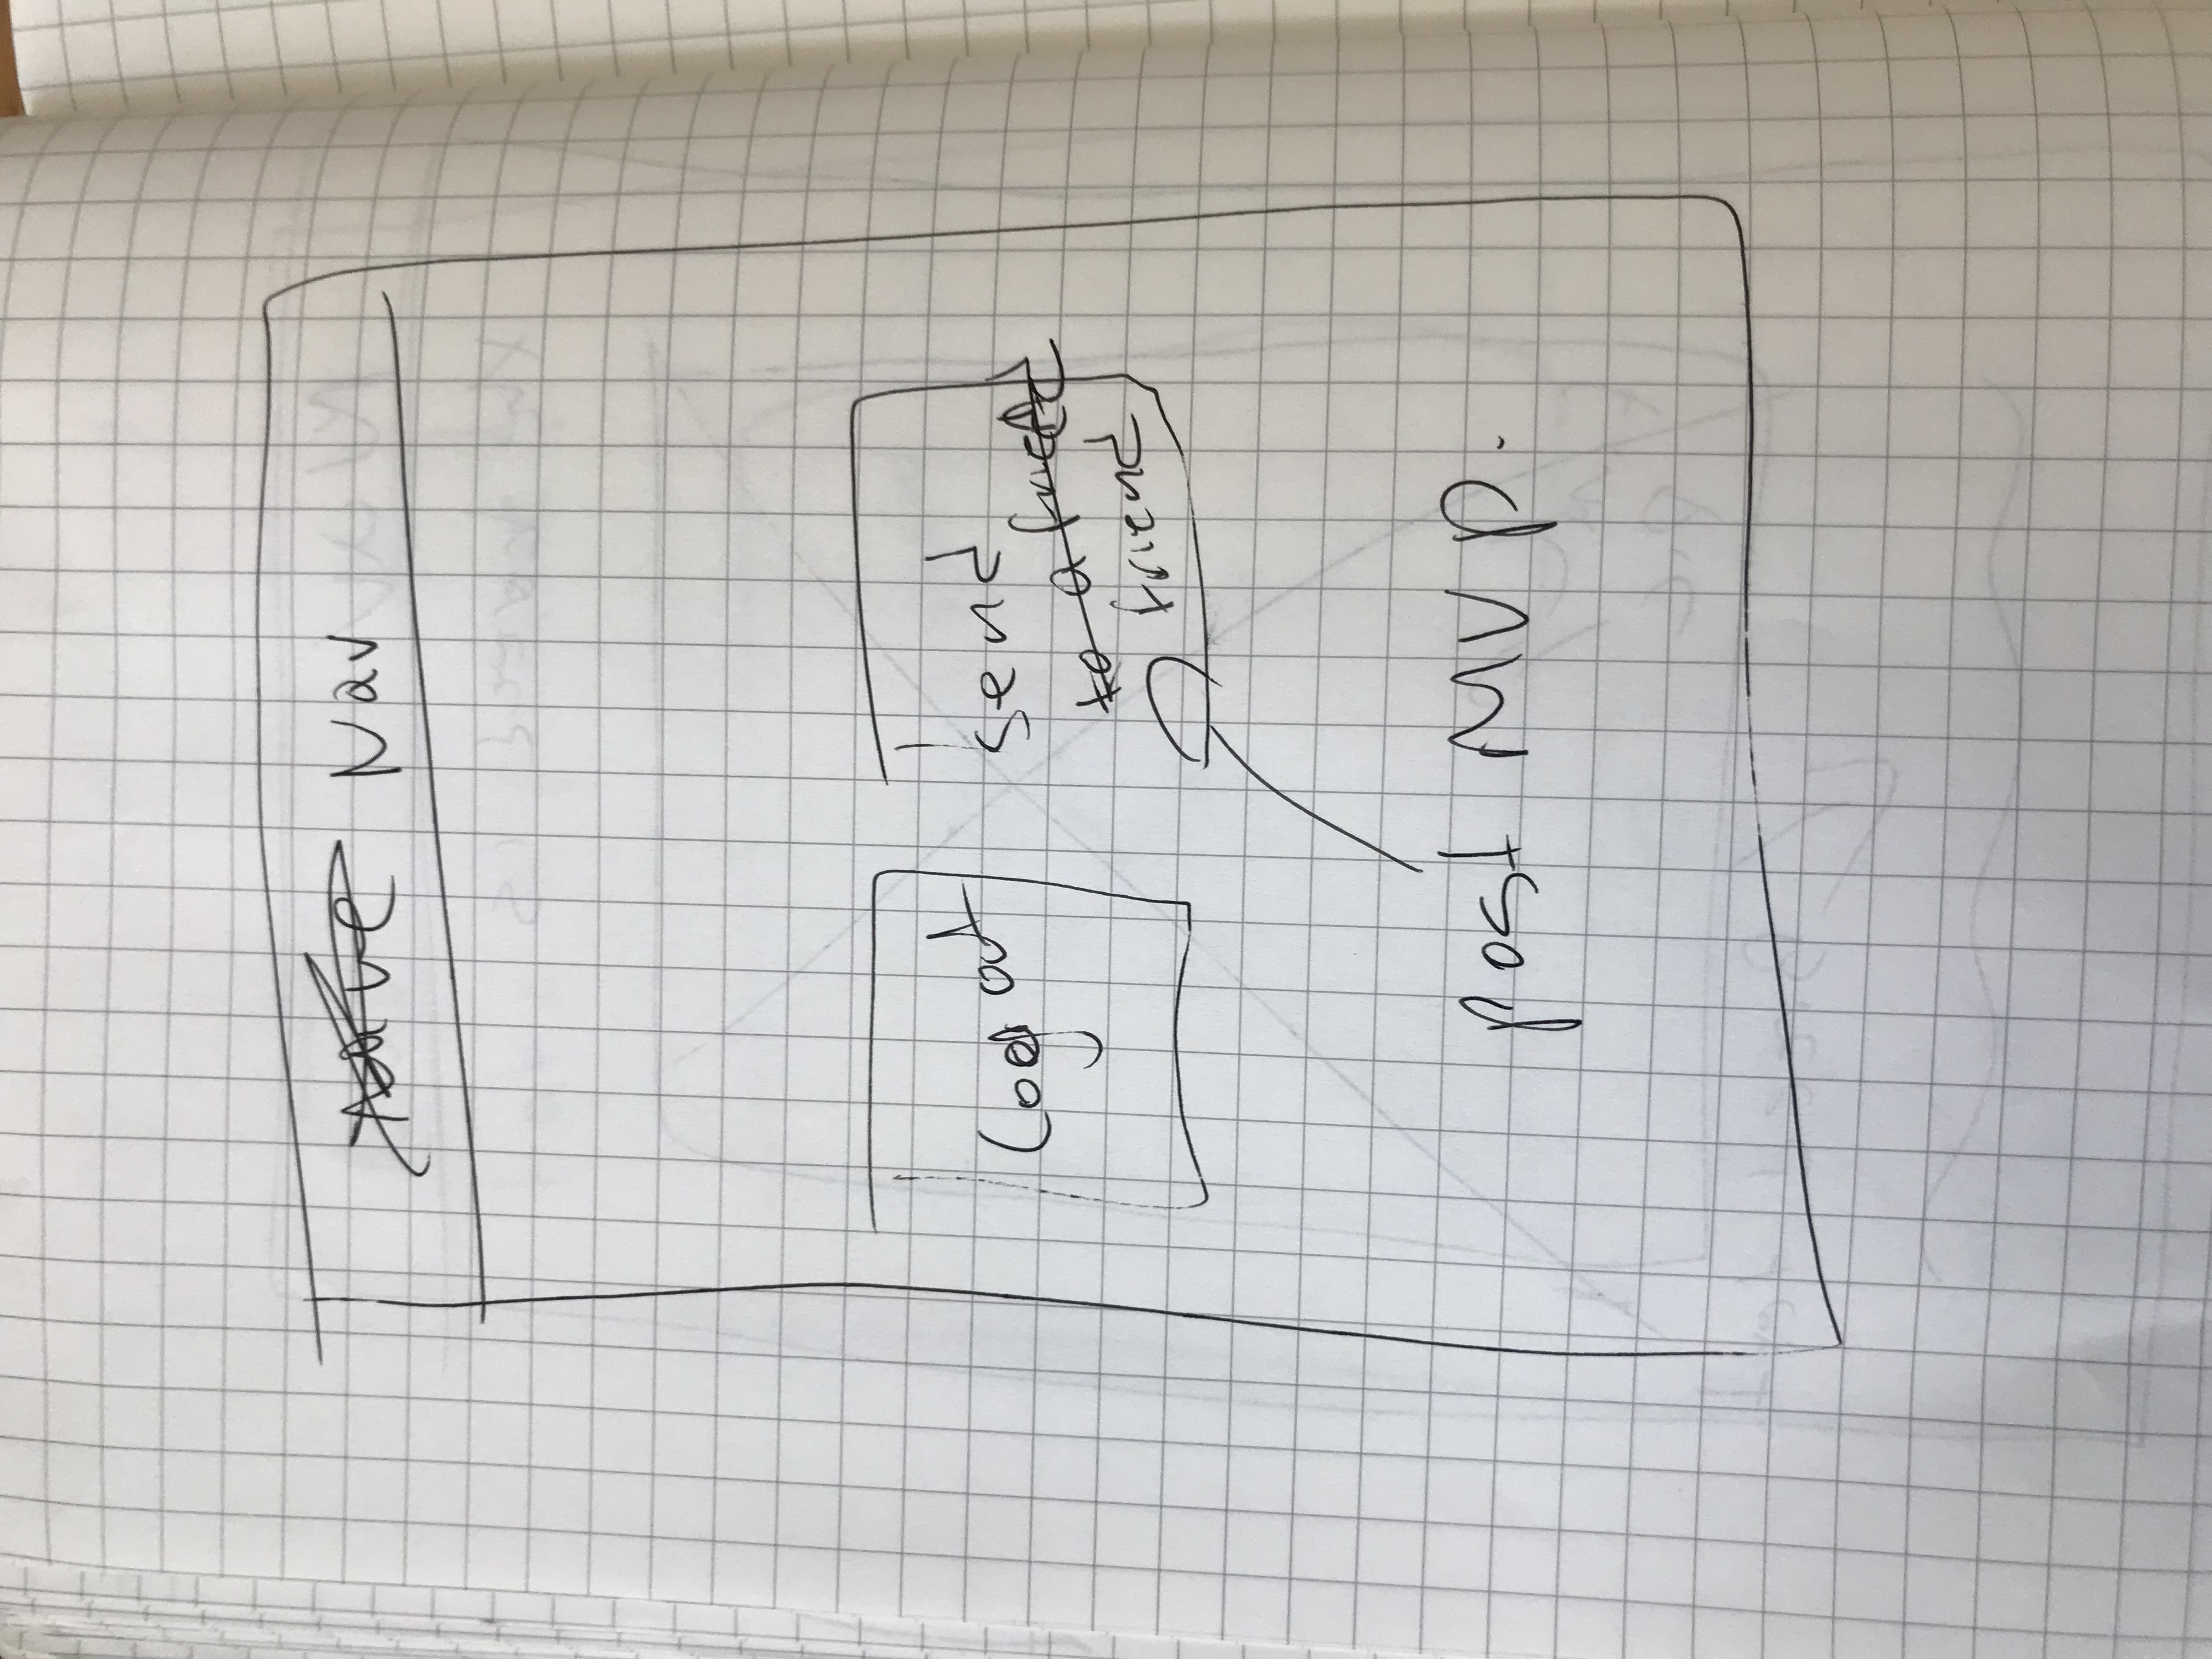 Nav
Log out
send
to a friend
friend
post MVP.